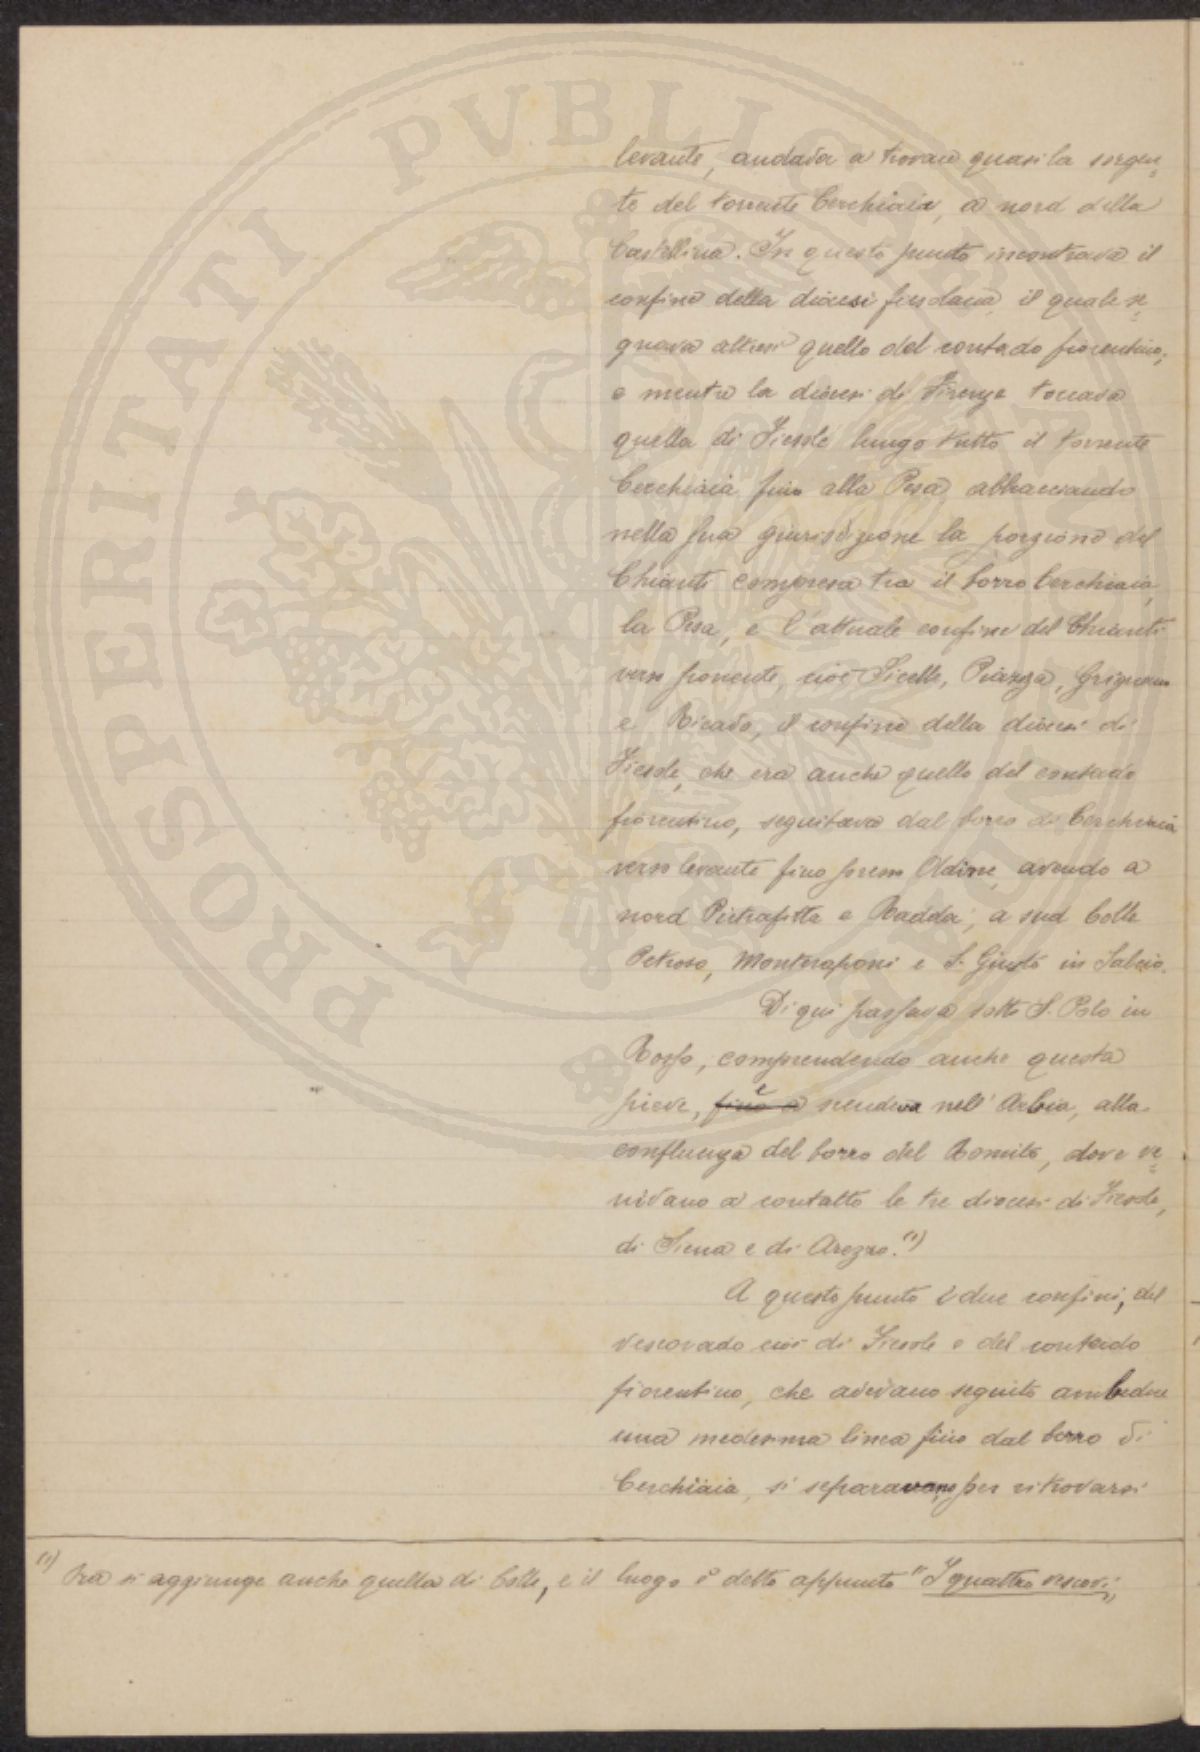 levante, andava a trovare quasi la sorgen=
te del torrente Cerchiaia, a nord della
Castellina. In questo punto incontrava il
confine della diocesi fiesolana, il quale se=
gnava altresì quello del contado fiorentino;
e mentre la diocesi di Firenze toccava
quella di Fiesole lungo tutto il torrente
Cerchiaia fino alla Pesa, abbracciando
nella sua giurisdizione la porzione del
Chianti compresa tra il borro Cerchiaia,
la Pesa, e l'attuale confine del Chianti
verso ponente, cioè Sicelle, Piazza, Grignano
e Ricavo, il confine della diocesi di
Fiesole, che era anche quello del contado
fiorentino, seguitava dal borro di Cerchiaia
verso levante fino presso Adine, avendo a
nord Pietrafitta e Radda, a sud Colle
Petroso, Monteraponi e S. Giusto in Salcio.
Di qui passava sotto S. Polo in
Rosso, comprendendo anche questa
pieve, fino a e scendeva nell'Arbia, alla
confluenza del borro del Romito, dove ve=
nivano a contatto le tre diocesi di Fiesole,
di Siena e di Arezzo. (1)
A questo punto i due confini, del
vescovado cioè di Fiesole e del contado
fiorentino, che avevano seguito ambedue
una medesima linea fino dal borro di
Cerchiaia, si separavano per ritrovarsi
(1) Ora si aggiunge anche quella di Colle, e il luogo è detto appunto "I quattro vescovi"
PROSPERITATI PVBLICAE